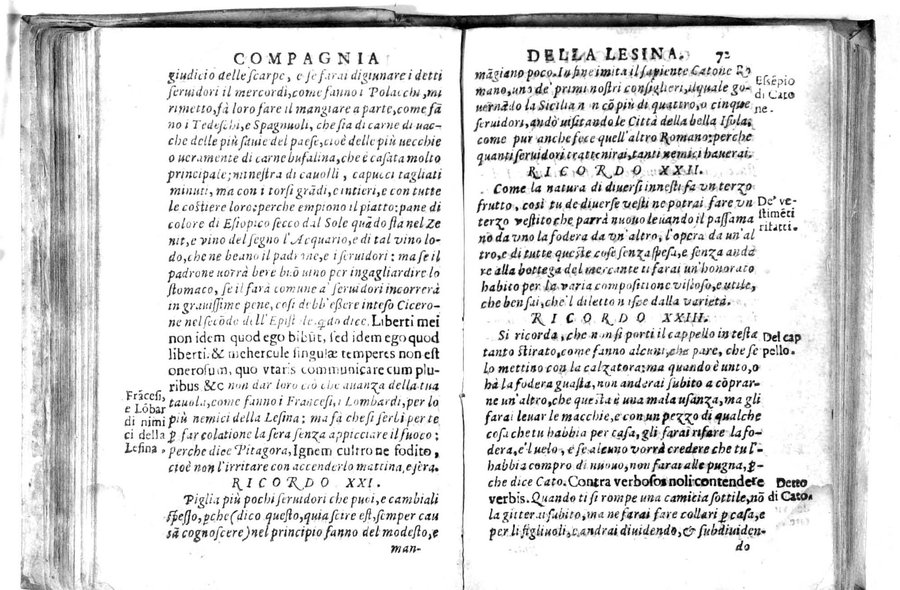 COMPAGNIA
giudicio delle scarpe, e se farai digiunare i detti
seruidori il mercordì, come fanno i Polacchi, mi
rimetto, fà loro fare il mangiare a parte, come fã
no i Tedeschi, e Spagnuoli, che sia di carne di uac-
che delle più sauie del paese, cioè delle più uecchie
o ueramente di carne bufalina, che è casata molto
principale; minestra di cauolli, capucci tagliati
minuti, ma con i torsi grãdi, e intieri, e con tutte
le costiere loro: perche empiono il piatto; pane di
colore di Etiopico secco dal Sole quãdo sta nel Ze
nit, e vino del segno l'Acquario, e di tal vino lo-
do, che ne beano il padrone, e i seruidori: ma se il
padrone uorrà bere buõ uino per ingagliardire lo
stomaco, se il farà comune a' seruidori incorrerà
in grauissime pene, cosi debb'essere inteso Cicero-
ne nel secõdo dell'Epistole, qdo dice. Liberti mei
non idem quod ego bibũt, sed idem ego quod
liberti. & mehercule singulæ temperes non est
onerosum, quo vtaris communicare cum plu-
ribus &c non dar loro ciò che auanza della tua
tauola, come fanno i Francesi, i Lombardi, per lo
più nemici della Lesina; ma fà che si serbi per te
ꝑ far colatione la sera senza appicciare il fuoco;
perche dice Pitagora, Ignem cultro ne fodito,
cioè non l'irritare con accenderlo mattina, e sera.
Frãcesi,
e Lõbar
di nimi
ci della
Lesina.
RICORDO XXI.
Piglia più pochi seruidori che puoi, e cambiali
spesso, ꝑche (dico questo, quia scire est, semper cau
sã cognoscere) nel principio fanno del modesto, e
man-
DELLA LESINA. 72
mãgiano poco. In fine imita il sapiente Catone Ro
mano, uno de' primi nostri consiglieri, il quale go-
uernãdo la Sicilia non cõ più di quattro, o cinque
seruidori, andò uisitando le Città della bella Isola,
come pur anche fece quell'altro Romano: perche
quanti seruidori tratterrai, tanti nemici hauerai.
Essẽpio
di Cato
ne.
RICORDO XXII.
Come la natura di diuersi innesti fa vn terzo
frutto, così tu de diuerse vesti ne potrai fare vn
terzo vestito che parrà nuouo leuando il passama
no da vno la fodera da vn'altro, l'opera da vn'al
tro, e di tutte queste cose senza spesa, e senza andã
re alla bottega del mercante ti farai vn'honorato
habito per la varia compositione vistoso, e utile,
che ben sai, che'l diletto nasce dalla varietà.
De' ve-
stimẽti
rifatti.
RICORDO XXIII.
Si ricorda, che non si porti il cappello in testa
tanto stirato, come fanno alcuni, che pare, che se
lo mettino con la calzatora; ma quando è unto, o
hà la fodera guasta, non anderai subito a cõprar-
ne un'altro, che questa è una mala usanza, ma gli
farai leuar le macchie, e con un pezzo di qualche
cosa che tu habbia per casa, gli farai rifare la fo-
dera, e'l uelo, e se alcuno vorrà credere che tu l'-
habbia compro di nuouo, non farai alle pugna, ꝑ-
che dice Cato. Contra verbosos noli contendere
verbis. Quando ti si rompe una camicia sottile, nõ
la gitterai subito, ma ne farai fare collari ꝑ casa, e
per li figliuoli, e andrai diuidendo, & subdiuiden-
do
Del cap
pello.
Detto
di Cato.